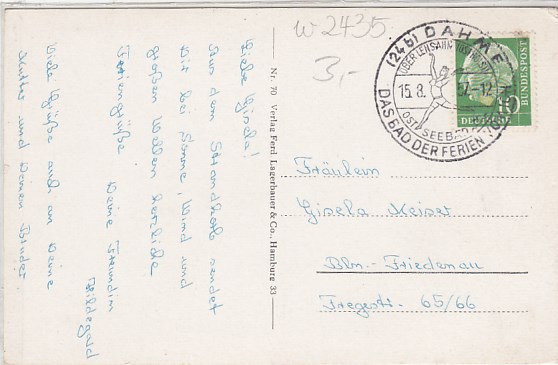 Liebe Gisela!
Aus dem Strandkorb sendet
Dir bei Sonne, Wind und
großen Wellen herzliche
Feriengrüße. Deine Freundin
Hildegard
Viele Grüße auch an Deine
Mutter und Deinen Bruder.
Nr. 70 Verlag Ferd. Lagerbauer & Co., Hamburg 33
W 2435
3,-
(24b) DAHME
ÜBER LENSAHN
15.8. 57.-12
OSTSEEBAD
DAS BAD DER FERIEN
DEUTSCHE BUNDESPOST
10
Fräulein
Gisela Keiser
Bln.- Friedenau
Fregestr. 65/66